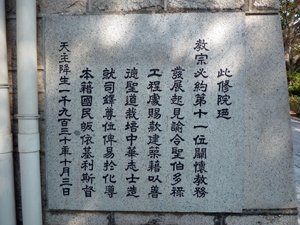 此修院廼
教宗必約第十一位關懷教務
發展起見諭令聖伯多祿
工程處賜款建築藉以善
德聖道栽培中華志士造
就司鐸尊位俾易於化導
本籍國民皈依基利斯督
天主降生一千九百三十年十月三日